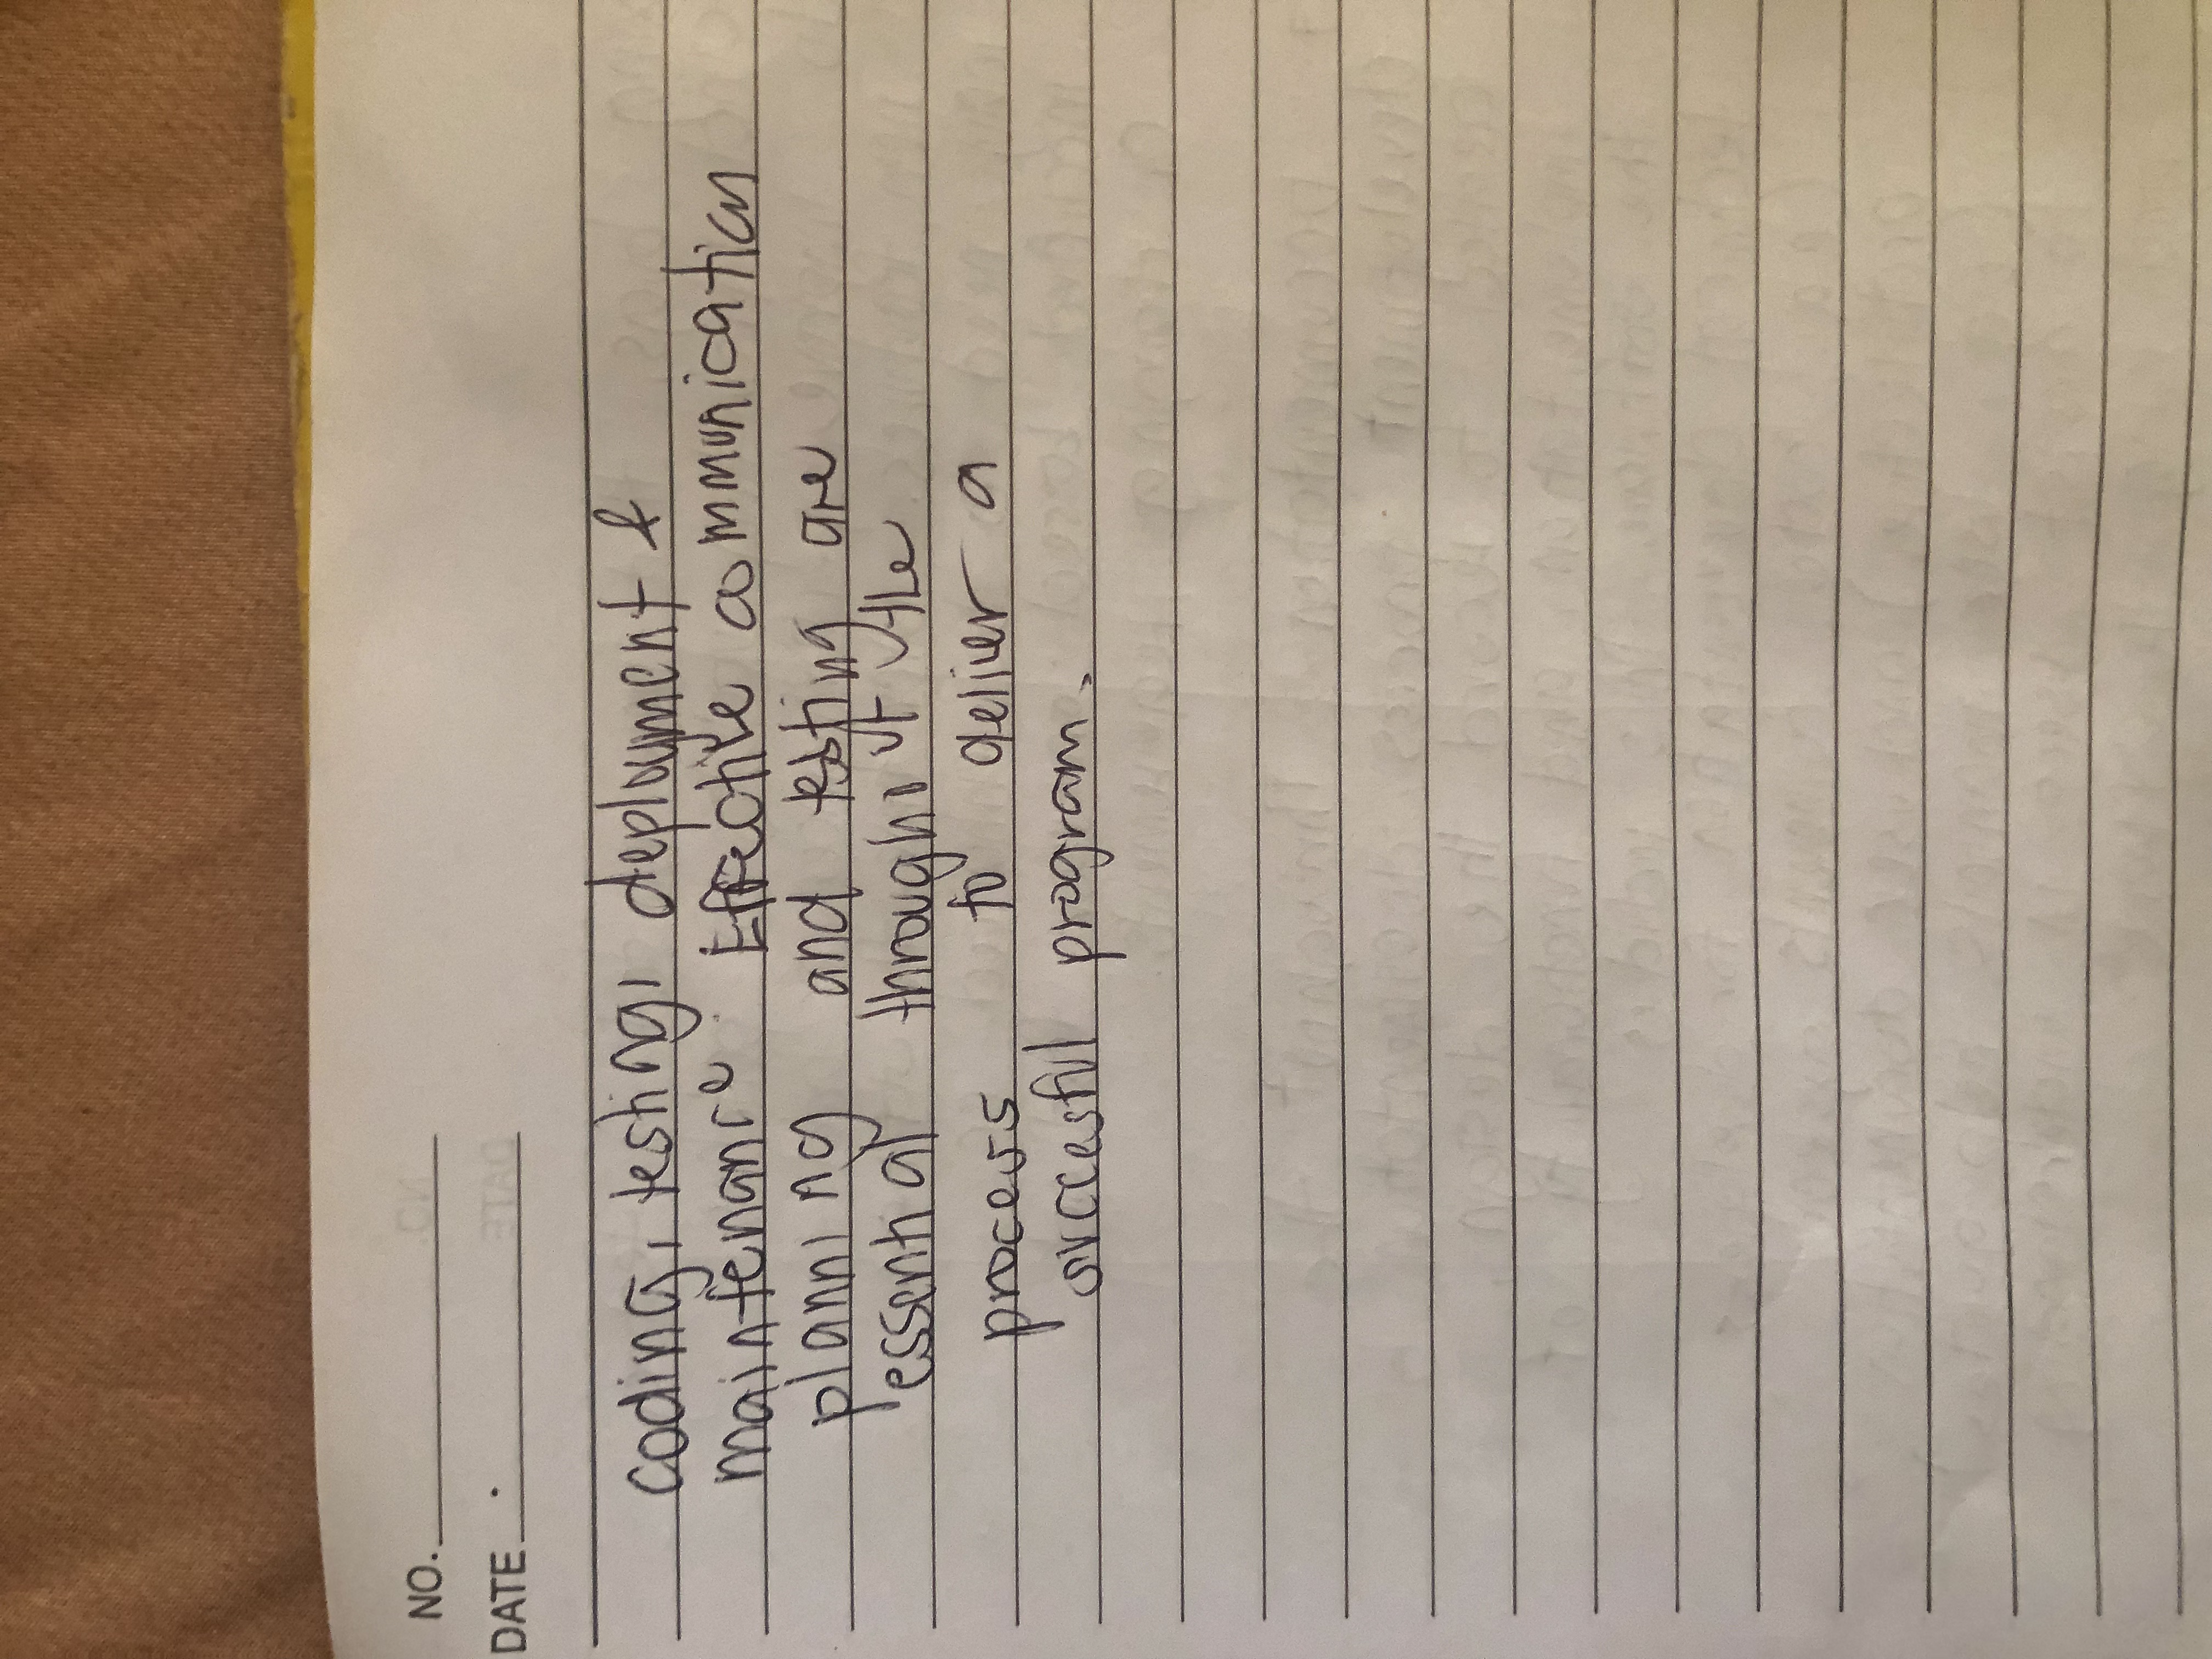 NO.
DATE
coding, testing, deployment &
maintenance. Effective communication
planning and testing are
essential throughout the
process to deliver a
succesful program.